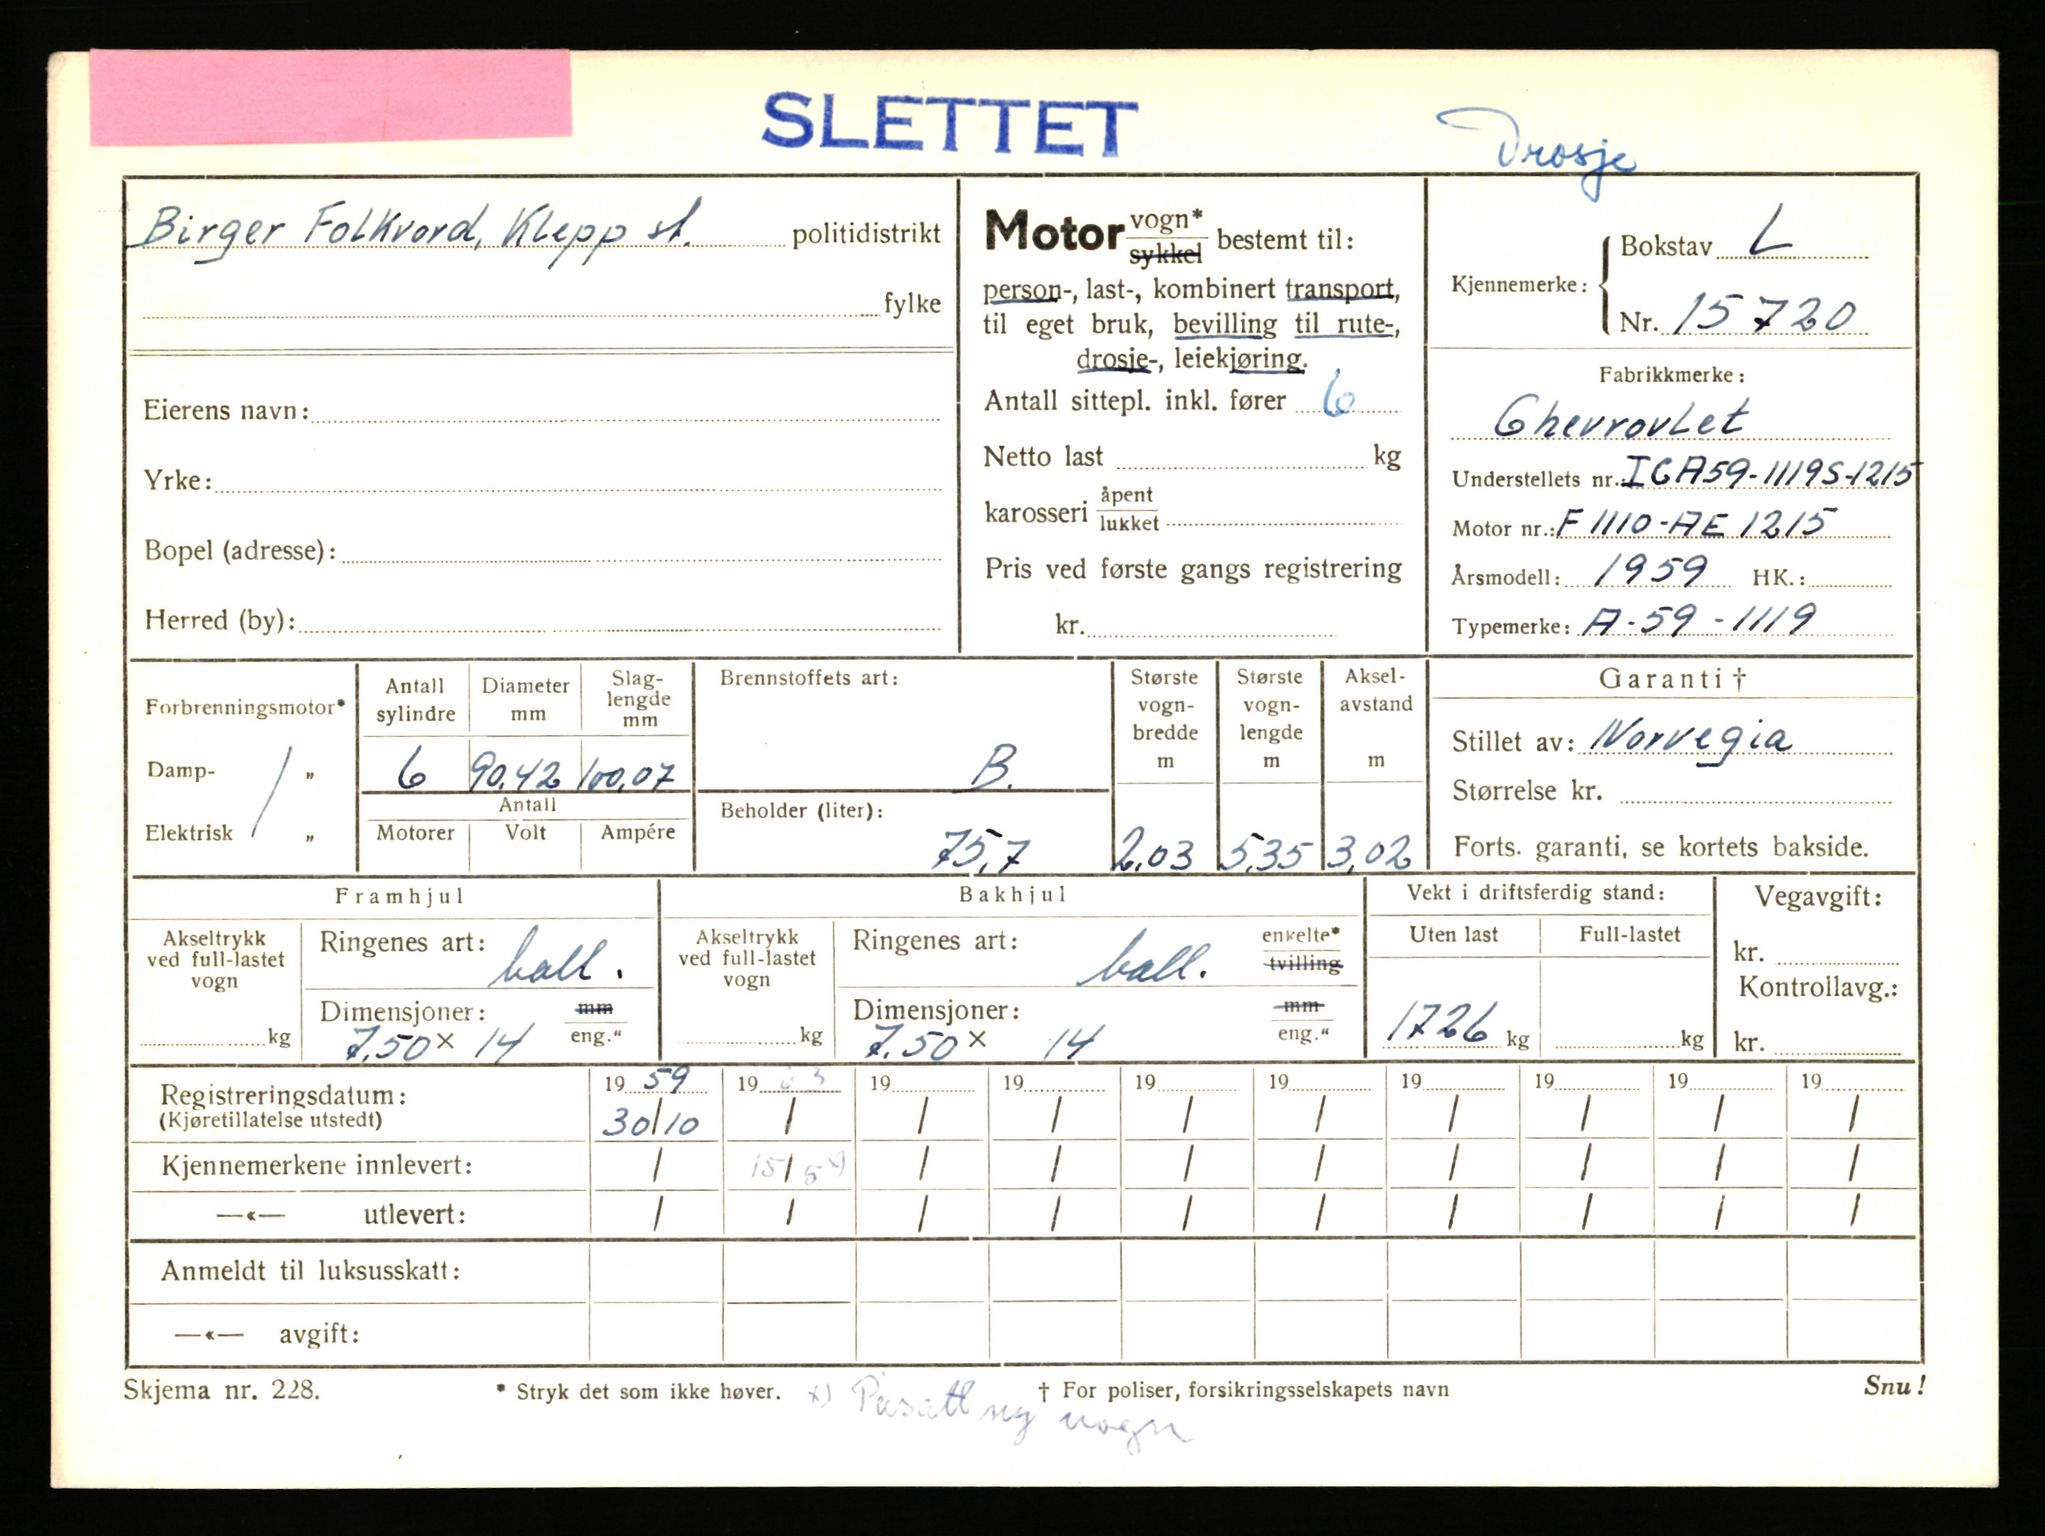 SLETTET
Drosje
Birger Folkvord, Klepp st. politidistrikt
fylke
Eierens navn:
Yrke:
Bopel (adresse):
Herred (by):
Motor vogn* sykkel bestemt til:
person-, last-, kombinert transport,
til eget bruk, bevilling til rute-,
drosje-, leiekjøring.
Antall sittepl. inkl. fører 6
Netto last kg
karosseri åpent lukket
Pris ved første gangs registrering
kr.
Kjennemerke: Bokstav L
Nr. 15720
Fabrikkmerke:
Chevrovlet
Understellets nr.: ICA59-1119S-1215
Motor nr.: F1110-AE1215
Årsmodell: 1959 HK.:
Typemerke: A-59-1119
Forbrenningsmotor*
Damp- „
Elektrisk „
Antall sylindre
Diameter mm
Slag-lengde mm
6 90.42 100,07
Antall
Motorer Volt Ampére
Brennstoffets art:
B.
Beholder (liter):
75,7
Største vogn-bredde m
2,03
Største vogn-lengde m
5,35
Aksel-avstand m
3,02
Garanti †
Stillet av: Norvegia
Størrelse kr.
Forts. garanti, se kortets bakside.
Framhjul
Akseltrykk ved full-lastet vogn
kg
Ringenes art: ball.
Dimensjoner: mm
7.50 x 14 eng."
Bakhjul
Akseltrykk ved full-lastet vogn
kg
Ringenes art: ball. enkelte* tvilling
Dimensjoner: mm
7.50 x 14 eng."
Vekt i driftsferdig stand:
Uten last Full-lastet
1726 kg kg
Vegavgift:
kr.
Kontrollavg.:
kr.
Registreringsdatum: 19 59 19 63 19 19 19 19 19 19 19 19
(Kjøretillatelse utstedt) 30/10 / / / / / / / / /
Kjennemerkene innlevert: / 15/5 x) / / / / / / / /
—«— utlevert: / / / / / / / / / /
Anmeldt til luksusskatt:
—«— avgift:
Skjema nr. 228. * Stryk det som ikke høver. † For poliser, forsikringsselskapets navn Snu!
x) Påsatt ny vogn